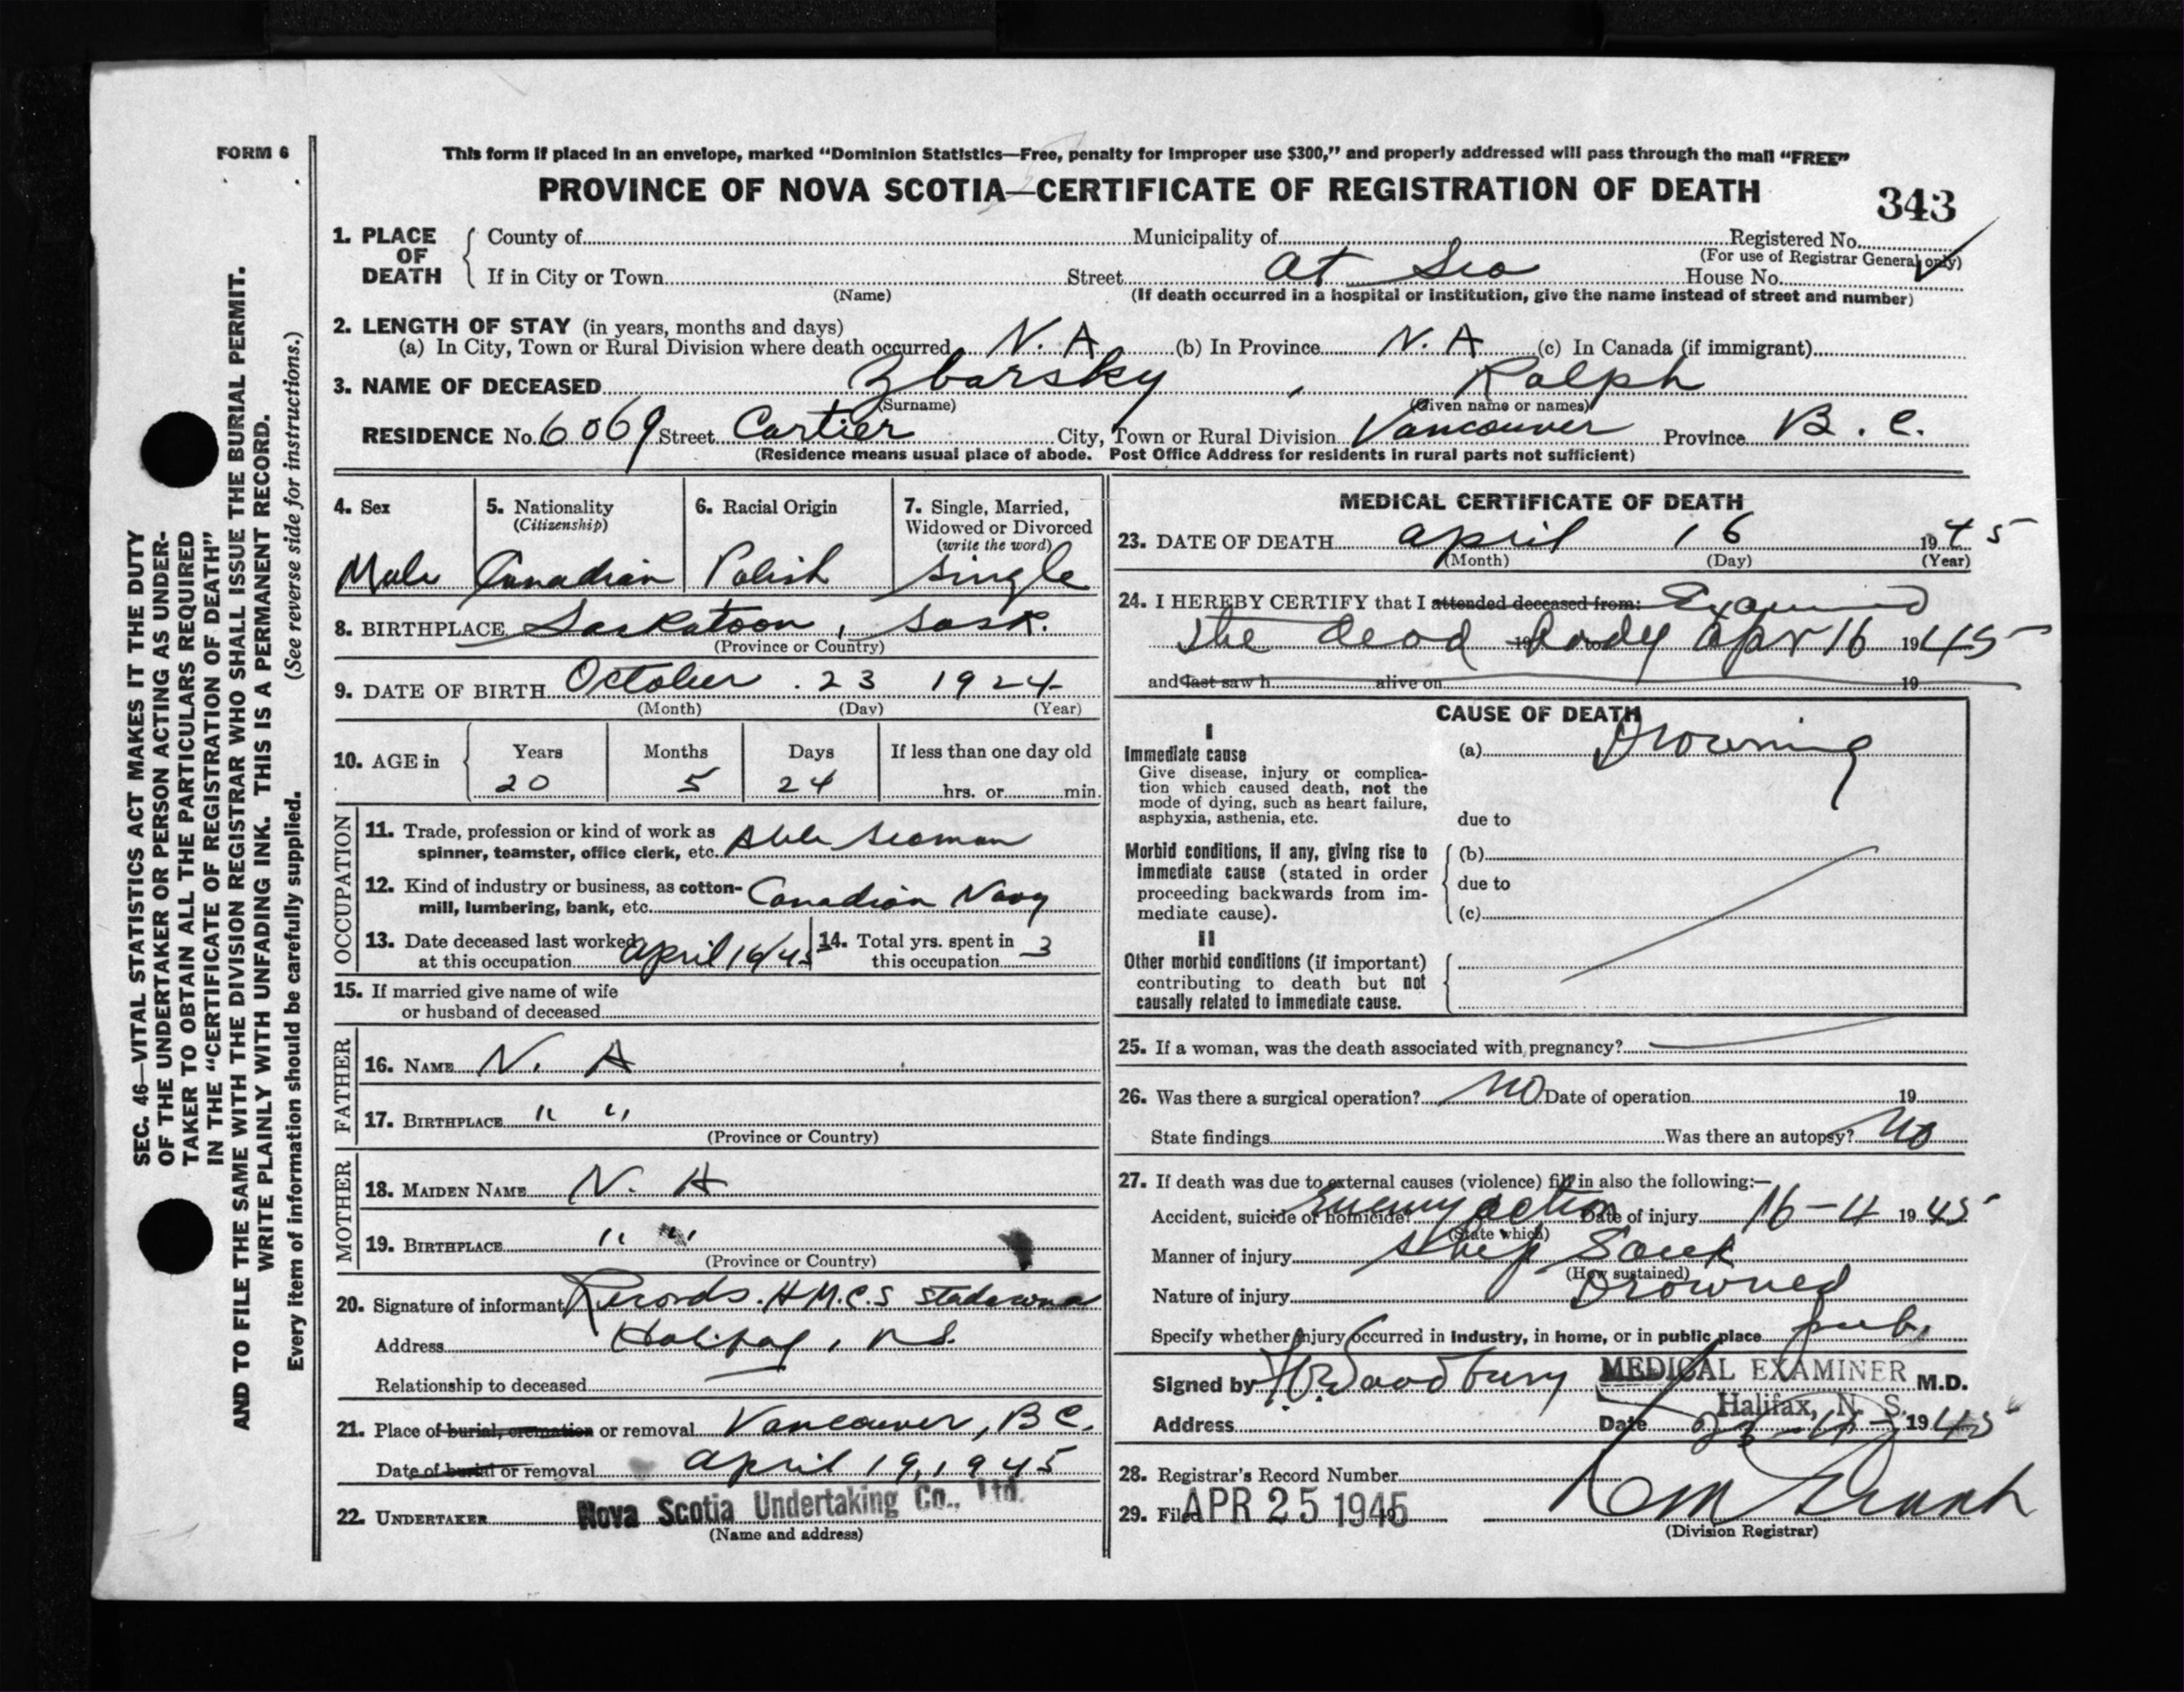 FORM 6
This form if placed in an envelope, marked "Dominion Statistics—Free, penalty for improper use $300," and properly addressed will pass through the mail "FREE"
PROVINCE OF NOVA SCOTIA—CERTIFICATE OF REGISTRATION OF DEATH
343
1. PLACE OF DEATH
County of
Municipality of
Registered No.
(For use of Registrar General only)
If in City or Town
Street At Sea House No.
(Name)
(If death occurred in a hospital or institution, give the name instead of street and number)
2. LENGTH OF STAY (in years, months and days)
(a) In City, Town or Rural Division where death occurred N. A (b) In Province N. A (c) In Canada (if immigrant)
3. NAME OF DECEASED Zbarsky , Ralph
(Surname) (Given name or names)
RESIDENCE No. 6069 Street Cartier City, Town or Rural Division Vancouver Province B. C.
(Residence means usual place of abode. Post Office Address for residents in rural parts not sufficient)
4. Sex
Male
5. Nationality
(Citizenship)
Canadian
6. Racial Origin
Polish
7. Single, Married,
Widowed or Divorced
(write the word)
Single
8. BIRTHPLACE Saskatoon, Sask.
(Province or Country)
9. DATE OF BIRTH October 23 1924
(Month) (Day) (Year)
10. AGE in
Years Months Days If less than one day old
20 5 24 hrs. or min.
OCCUPATION
11. Trade, profession or kind of work as
spinner, teamster, office clerk, etc. Able Seaman
12. Kind of industry or business, as cotton-
mill, lumbering, bank, etc. Canadian Navy
13. Date deceased last worked
at this occupation April 16/45
14. Total yrs. spent in
this occupation 3
15. If married give name of wife
or husband of deceased
FATHER
16. NAME N. A
17. BIRTHPLACE " "
(Province or Country)
MOTHER
18. MAIDEN NAME N. A
19. BIRTHPLACE " "
(Province or Country)
20. Signature of informant Records. H.M.C.S Stadacona
Address Halifax, N.S.
Relationship to deceased
21. Place of burial, cremation or removal Vancouver, B C.
Date of burial or removal April 19, 1945
22. UNDERTAKER Nova Scotia Undertaking Co., Ltd.
(Name and address)
MEDICAL CERTIFICATE OF DEATH
23. DATE OF DEATH April 16 1945
(Month) (Day) (Year)
24. I HEREBY CERTIFY that I attended deceased from: Examined
the dead body Apr 16 1945
and last saw h alive on 19
CAUSE OF DEATH
I
Immediate cause
Give disease, injury or complica-
tion which caused death, not the
mode of dying, such as heart failure,
asphyxia, asthenia, etc.
(a) Drowning
due to
Morbid conditions, if any, giving rise to
immediate cause (stated in order
proceeding backwards from im-
mediate cause).
(b)
due to
(c)
II
Other morbid conditions (if important)
contributing to death but not
causally related to immediate cause.
25. If a woman, was the death associated with pregnancy?
26. Was there a surgical operation? No Date of operation 19
State findings Was there an autopsy? No
27. If death was due to external causes (violence) fill in also the following:—
Accident, suicide or homicide? Enemy action Date of injury 16-4 1945
(State which)
Manner of injury Ship Sunk
(How sustained)
Nature of injury Drowned
Specify whether injury occurred in industry, in home, or in public place pub.
Signed by Woodbury MEDICAL EXAMINER M.D.
Halifax, N. S.
Address Date 23-4-1945
28. Registrar's Record Number
29. Filed APR 25 1945
(Division Registrar)
SEC. 46—VITAL STATISTICS ACT MAKES IT THE DUTY
OF THE UNDERTAKER OR PERSON ACTING AS UNDER-
TAKER TO OBTAIN ALL THE PARTICULARS REQUIRED
IN THE "CERTIFICATE OF REGISTRATION OF DEATH"
AND TO FILE THE SAME WITH THE DIVISION REGISTRAR WHO SHALL ISSUE THE BURIAL PERMIT.
WRITE PLAINLY WITH UNFADING INK. THIS IS A PERMANENT RECORD.
Every item of information should be carefully supplied. (See reverse side for instructions.)